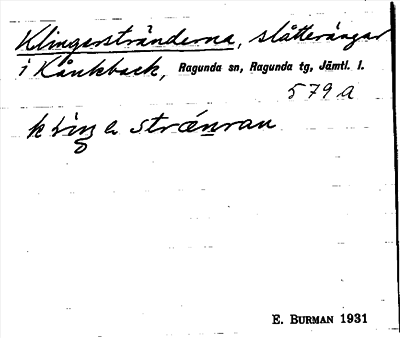 Klingerstränderna, slåtterängar
i Kånkback, Ragunda sn, Ragunda tg, Jämtl. l.
579 a
strǽnran
E. BURMAN 1931